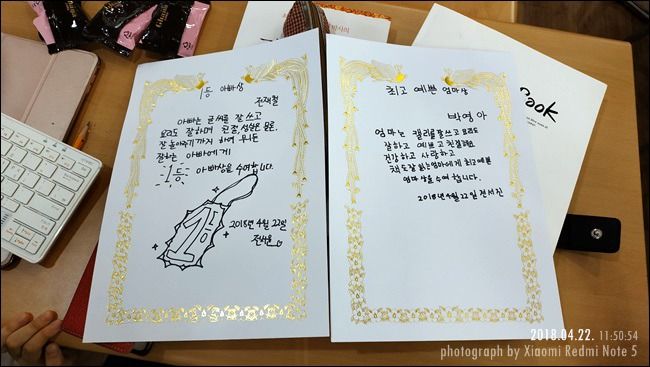 1등 아빠상
전재철
아빠는 글씨를 잘 쓰고
요리도 잘하며 친절, 성실은 물론,
잘 놀아주기까지 하여 뭐든
잘하는 아빠에게
1등 아빠상을 수여합니다.
1등
2018년 4월 22일
전서
최고 예쁜 엄마상
박영아
엄마는 캘리를 잘쓰고 요리도
잘하고 예쁘고 친절하고
건강하고 사랑하고
책도 잘 읽는 엄마에게 최고 예쁜
엄마 상을 수여 합니다.
2018년 4월 22일 전서진
ook
2018.04.22. 11:50:54
photograph by Xiaomi Redmi Note 5